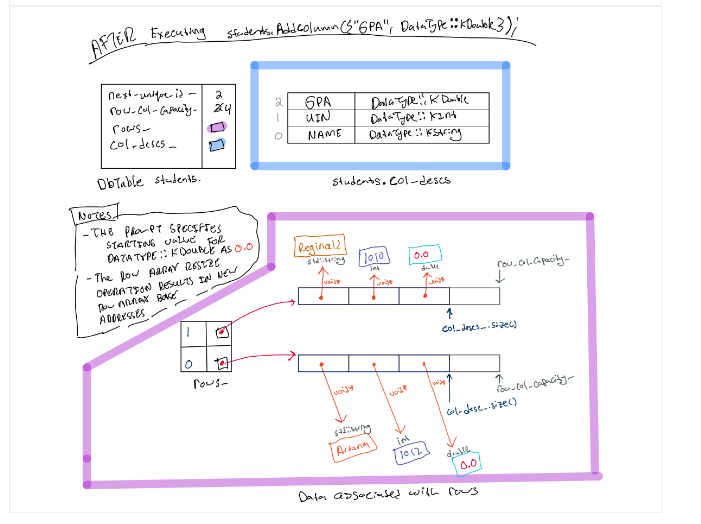 AFTER Executing students.AddColumn({"GPA", DataType::KDouble});
next-unique-id_ 2
row-col-capacity_ 4
rows_
col_descs_
DbTable students.
2 GPA DataType::KDouble
1 UIN DataType::KInt
0 NAME DataType::KString
students.col-descs
NOTES
- THE PROMPT SPECIFIES
STARTING VALUE FOR
DATATYPE::KDOUBLE AS 0.0
- The ROW ARRAY RESIZE
OPERATION RESULTS IN NEW
ROW ARRAY BASE
ADDRESSES
Reginald 1010 0.0
std::string int double
void* void* void*
row_col_capacity_
col_descs_.size()
1
0
rows_
row_col_capacity_
col_desc_.size()
void* void* void*
std::string int double
Ariana 1012 0.0
Data associated with rows